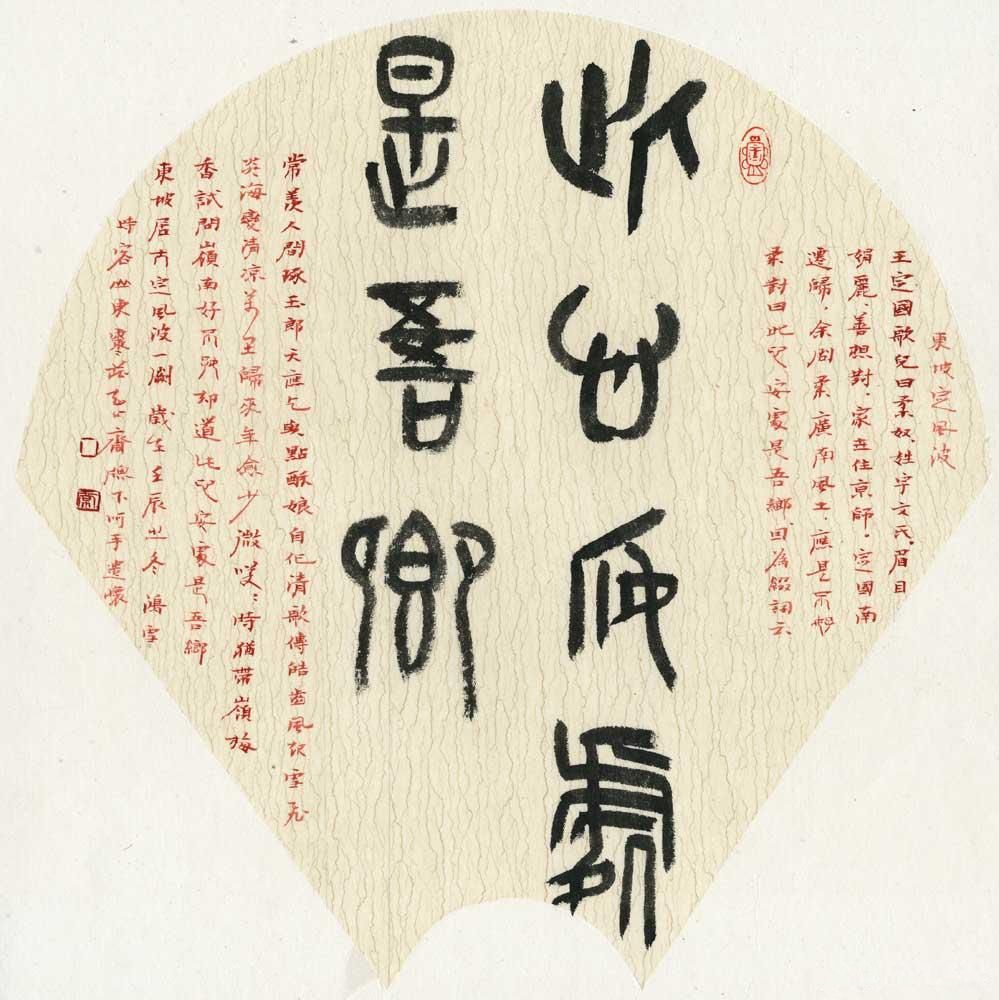 東坡定風波
王定國歌兒曰柔奴、姓宇文氏、眉目
娟麗、善想對、家世住京師。定國南
遷歸、余問柔、廣南風土、應是不好
柔對曰此心安處是吾鄉、因為綴詞云
此心安處
是吾鄉
常羨人間琢玉郎天應乞與點酥娘自作清歌傳皓齒風起雪飛
炎海變清涼萬里歸來年愈少微笑:時猶帶嶺梅
香試問嶺南好不好却道此心安處是吾鄉
東坡居士定風波一闋歲在壬辰之冬 鴻雪
時客山東 齋牕下呵手遣懷